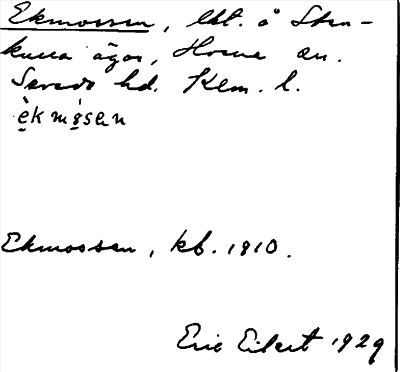 Ekmossen, lht. å Sten-
kulla ägor, Horne sn.
Sevede hd. Klm. l.
èkmósen
Ekmossen, kb. 1910.
Eric Eilert 1929